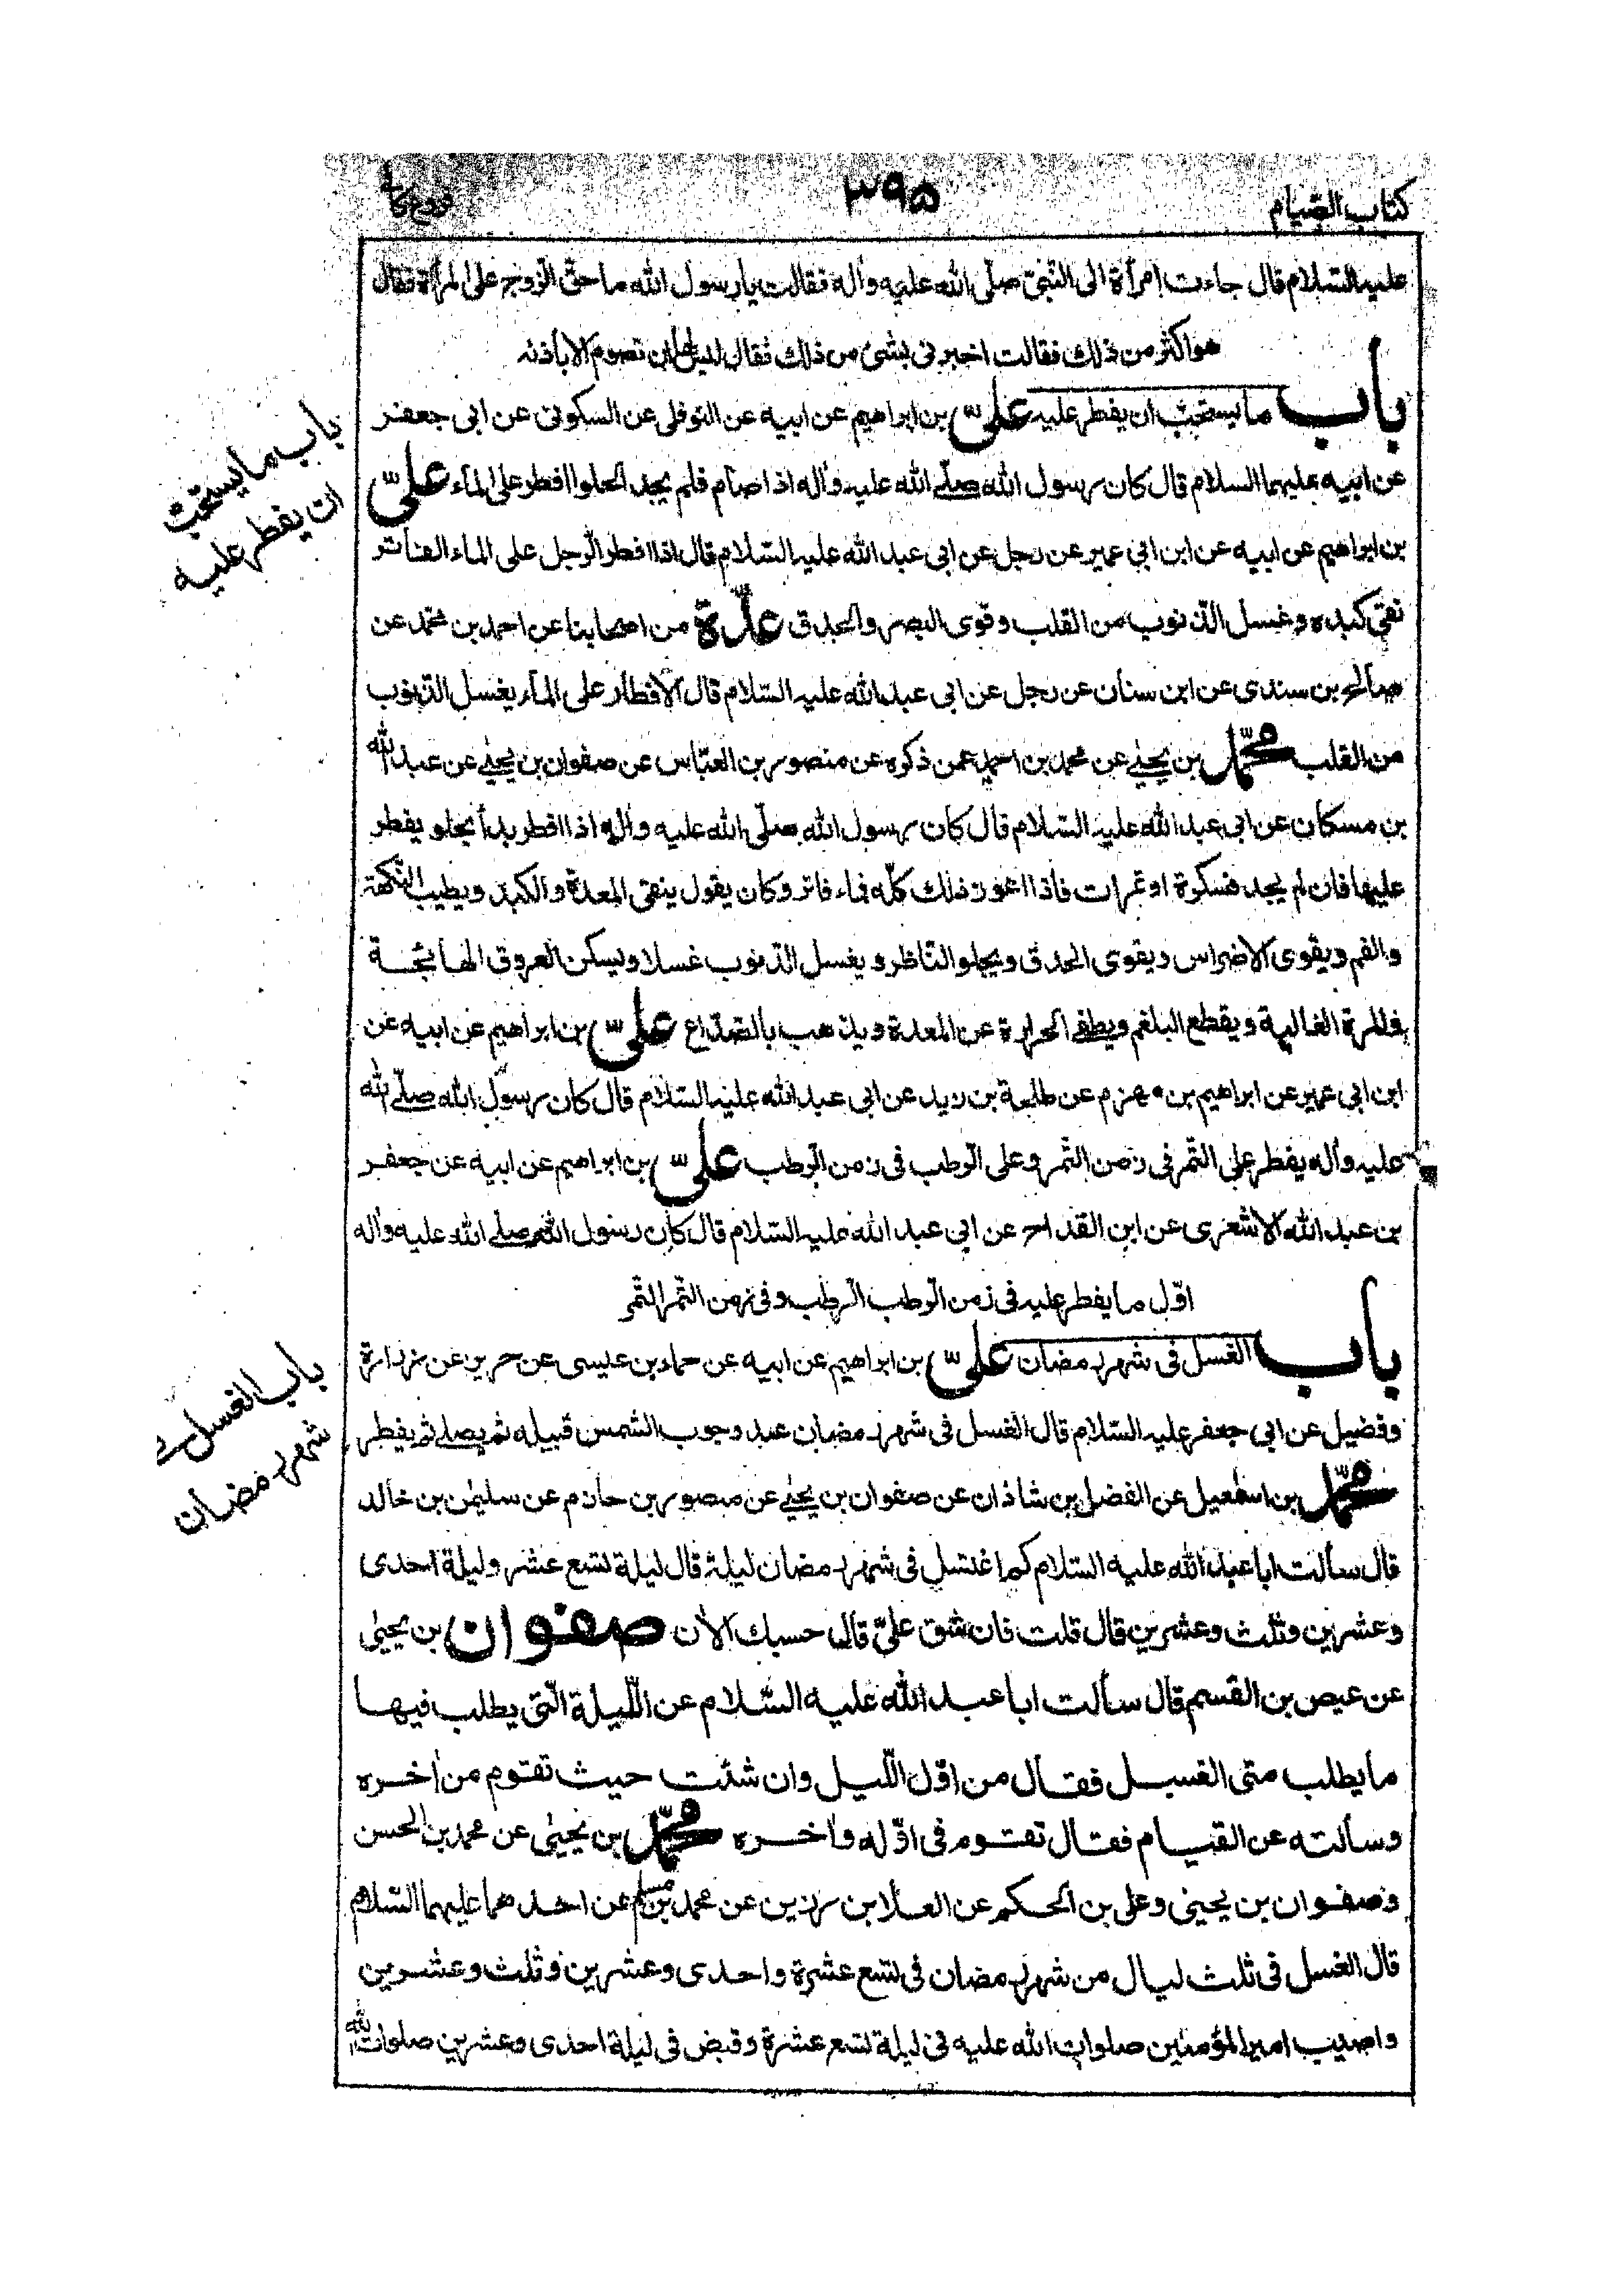 كتاب الصيام
٣٩٥
فروع كا
عليه السلام قال جاءت امرأة الى النبى صلّى الله عليه واله فقالت يا رسول الله ما حق الزوج على المرأة فقال
هو اكثر من ذلك فقالت اخبرنى بشئ من ذلك فقال ليس لها ان تصوم الا باذنه
باب ما يستحبّ ان يفطر عليه علىّ بن ابراهيم عن ابيه عن النوفلى عن السكونى عن ابى جعفر
عن ابيه عليهما السلام قال كان رسول الله صلّى الله عليه واله اذا صام فلم يجد الحلوا افطر على الماء علىّ
بن ابراهيم عن ابيه عن ابن ابى عمير عن رجل عن ابى عبد الله عليه السّلام قال اذا افطر الرجل على الماء الفاتر
نقى كبده وغسل الذنوب من القلب وقوى البصر والحدق عدّة من اصحابنا عن احمد بن محمد عن
صالح بن سندى عن ابن سنان عن رجل عن ابى عبد الله عليه السّلام قال الافطار على الماء يغسل الذنوب
من القلب محمّد بن يحيى عن محمد بن احمد عمن ذكره عن منصور بن العبّاس عن صفوان بن يحيى عن عبد الله
بن مسكان عن ابى عبد الله عليه السّلام قال كان رسول الله صلّى الله عليه واله اذا افطر بدأ بحلو يفطر
عليها فان لم يجد فسكرة او تمرات فاذا اعوز ذلك كلّه فماء فاتر وكان يقول ينقى المعدة والكبد ويطيب النّكهة
والفم ويقوى الاضراس ويقوى الحدق ويجلو الناظر ويغسل الذنوب غسلا ويسكن العروق الهائجة
والمرة الغالبة ويقطع البلغم ويطفى الحرارة عن المعدة ويذهب بالصّداع علىّ بن ابراهيم عن ابيه عن
ابن ابى عمير عن ابراهيم بن مهزم عن طلحة بن زيد عن ابى عبد الله عليه السّلام قال كان رسول الله صلّى الله
عليه واله يفطر على التّمر فى زمن التّمر وعلى الرّطب فى زمن الرّطب علىّ بن ابراهيم عن ابيه عن جعفر
بن عبد الله الاشعرى عن ابن القداح عن ابى عبد الله عليه السّلام قال كان رسول الله صلّى الله عليه واله
اوّل ما يفطر عليه فى زمن الرّطب الرّطب وفى زمن التّمر التّمر
باب الغسل فى شهر رمضان علىّ بن ابراهيم عن ابيه عن حماد بن عيسى عن حريز عن زرارة
وفضيل عن ابى جعفر عليه السّلام قال الغسل فى شهر رمضان عند وجوب الشمس قبيله ثم يصلى ثم يفطر
محمّد بن اسمعيل عن الفضل بن شاذان عن صفوان بن يحيى عن منصور بن حازم عن سليمن بن خالد
قال سألت ابا عبد الله عليه السّلام كم اغتسل فى شهر رمضان ليلة قال ليلة تسع عشر وليلة احدى
وعشرين وثلث وعشرين قال قلت فان شق علىّ قال حسبك الان صفوان بن يحيى
عن عيص بن القسم قال سألت ابا عبد الله عليه السّلام عن اللّيلة الّتى يطلب فيها
ما يطلب متى الغسل فقال من اوّل اللّيل وان شئت حيث تقوم من اخره
وسألته عن القيام فقال تقوم فى اوّله واخره محمّد بن يحيى عن محمد بن الحسن
وصفوان بن يحيى وعلى بن الحكم عن العلا بن رزين عن محمد بن مسلم عن احدهما عليهما السّلام
قال الغسل فى ثلث ليال من شهر رمضان فى تسع عشرة واحدى وعشرين وثلث وعشرين
واصيب امير المؤمنين صلوات الله عليه فى ليلة تسع عشرة وقبض فى ليلة احدى وعشرين صلوات الله
باب ما يستحبّ
ان يفطر عليه
باب الغسل فى
شهر رمضان